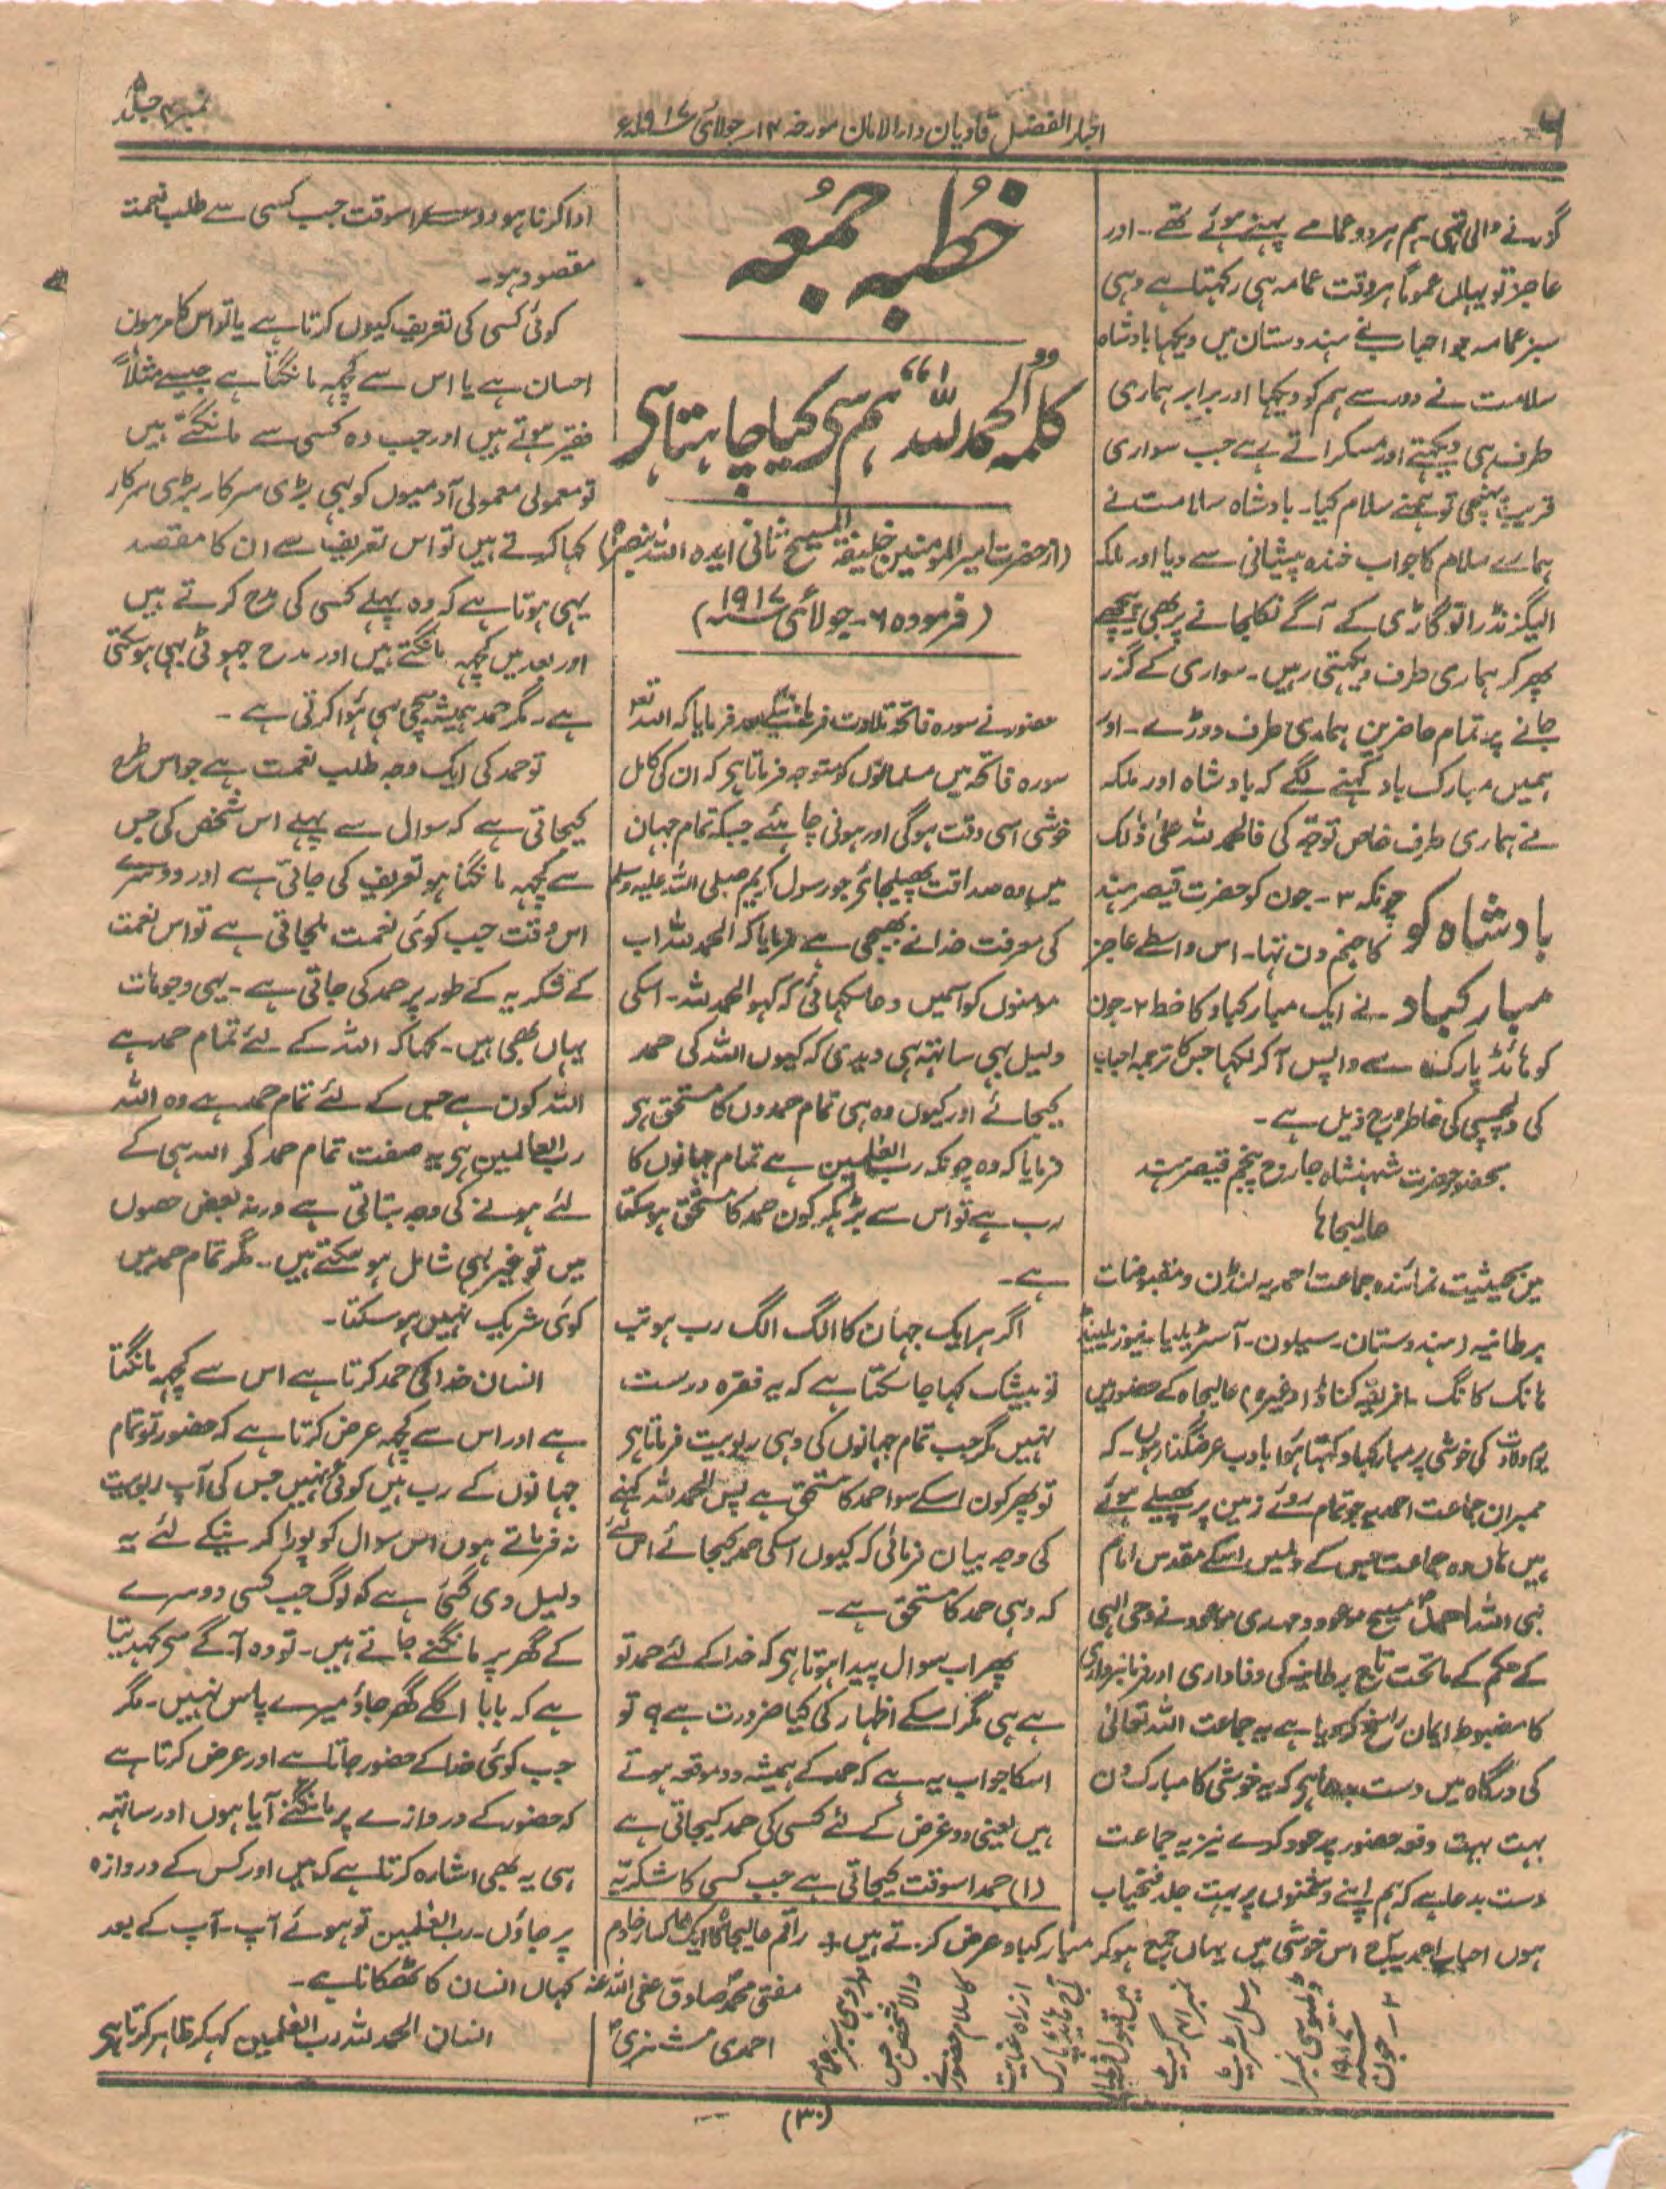 ۶
اخبار الفضل قادیان دارالامان مورخہ ۱۴؍ جولائی ۱۹۱۷ء
نمبر ۴ جلد ۵
گذرنے والی تھی۔ ہم ہر دو عمامے پہنے ہوئے تھے۔ اور
عاجز تو یہاں عموماً ہر وقت عمامہ ہی رکہتا ہے وہی
سبز عمامہ جو احباب نے ہندوستان میں دیکہا بادشاہ
سلامت نے دور سے ہم کو دیکہا اور برابر ہماری
طرف ہی دیکہتے اور مسکراتے رہے جب سواری
قریب پہنچی تو ہمنے سلام کیا۔ بادشاہ سلامت نے
ہمارے سلام کا جواب خندہ پیشانی سے دیا اور ملکہ
الیگزنڈرا تو گاڑی کے آگے نکلجانے پر بھی پیچھے
پھر کر ہماری طرف دیکہتی رہیں۔ سواری کے گزر
جانے پر تمام حاضرین ہماری طرف دوڑے۔ اور
ہمیں مبارک باد کہنے لگے کہ بادشاہ اور ملکہ
نے ہماری طرف خاص توجہ کی فالحمد للہ علیٰ ذٰلک
بادشاہ کو چونکہ ۳۔ جون کو حضرت قیصر ہند
کا جنم دن تہا۔ اس واسطے عاجز
مبارکباد نے ایک مبارکباد کا خط ۲۔ جون
کو ہائڈ پارک سے واپس آکر لکہا جس کا ترجمہ احباب
کی دلچسپی کی خاطر درج ذیل ہے۔
بحضور حضرت شہنشاہ جارج پنجم قیصر ہند
عالیجاہا
میں بحیثیت نمائندہ جماعت احمدیہ لنڈن و مقبوضات
برطانیہ (ہندوستان۔ سیلون۔ آسٹریلیا۔ نیوزیلینڈ
ہانک کانگ۔ افریقہ کناڈا وغیرہ) عالیجاہ کے حضور میں
یوم ولادت کی خوشی پر مبارکباد کہتا ہوا بادب عرضگذار ہوں۔ کہ
ممبران جماعت احمدیہ جو تمام روئے زمین پر پھیلے ہوئے
ہیں ہاں وہ جماعت جس کے دلمیں اسکے مقدس امام
نبی اللہ احمدؑ مسیح موعود و مہدی موعود نے وحی الٰہی
کے حکم کے ماتحت تاج برطانیہ کی وفاداری اور فرمانبرداری
کا مضبوط ایمان راسخ کر دیا ہے یہ جماعت اللہ تعالیٰ
کی درگاہ میں دست بدعا ہی کہ یہ خوشی کا مبارک دن
بہت بہت دفعہ حضور پر عود کرے نیز یہ جماعت
دست بدعا ہے کہ ہم اپنے دشمنوں پر بہت جلد فتحیاب
ہوں احباب احمدیہ اس خوشی میں یہاں جمع ہو کر مبارکباد عرض کرتے ہیں۔ راقم عالیجاہ کا ایک خاکسار خادم
مفتی محمد صادق عفی اللہ عنہ
احمدی مشنری
وہی سبز عمامہ
والا شخص جس
کا سلام حضور نے
از راہ عنایت
آج ہائڈ پارک
میں قبول فرمایا
نمبر ۴ گریٹ
رسل اسٹریٹ
ڈبلیو سی نمبر ۱
۲۔ جون ۱۹۱۷ء
خُطبہ جُمُعہ
کلمہ ”الحمدللہ“ ہم سے کیا چاہتا ہی
(از حضرت امیر المومنین خلیفۃ المسیح ثانی ایدہ اللہ بنصرہ)
(فرمودہ ۶۔ جولائی ۱۹۱۷ء)
حضور نے سورہ فاتحہ تلاوت فرمانیکے بعد فرمایا کہ اللہ تعہ
سورہ فاتحہ میں مسلمانوں کو متوجہ فرماتا ہی کہ ان کی کامل
خوشی اسی وقت ہوگی اور ہونی چاہئیے جبکہ تمام جہان
میں وہ صداقت پھیلجائے جو رسول کریم صلی اللہ علیہ وسلم
کی معرفت خدا نے بھیجی ہے فرمایا کہ الحمد للہ اب
مومنوں کو اسمیں دعا سکہائی کہ کہو الحمد للہ۔ اسکی
دلیل بہی ساتہہ ہی دیدی کہ کیوں اللہ کی حمد
کیجائے اور کیوں وہ ہی تمام حمدوں کا مستحق ہی
فرمایا کہ وہ چونکہ رب العٰلمین ہے تمام جہانوں کا
رب ہے تو اس سے بڑہکر کون حمد کا مستحق ہو سکتا
ہے۔
اگر ہر ایک جہان کا الگ الگ رب ہو تب
تو بیشک کہا جا سکتا ہے کہ یہ فقرہ درست
نہیں مگر جب تمام جہانوں کی وہی ربوبیت فرماتا ہی
تو پھر کون اسکے سوا حمد کا مستحق ہے پس الحمد للہ کہنے
کی وجہ بیان فرمائی کہ کیوں اسکی حمد کیجائے اس لئے
کہ وہی حمد کا مستحق ہے۔
پھر اب سوال پیدا ہوتا ہی کہ خدا کے لئے حمد تو
ہے ہی مگر اسکے اظہار کی کیا ضرورت ہے؟ تو
اسکا جواب یہ ہے کہ حمد کے ہمیشہ دو موقعہ ہوتے
ہیں یعنی دو غرض کے لئے کسی کی حمد کیجاتی ہے
(۱) حمد اسوقت کیجاتی ہے جب کسی کا شکریہ
ادا کرنا ہو دوسرے اسوقت جب کسی سے طلب نعمت
مقصود ہو۔
کوئی کسی کی تعریف کیوں کرتا ہے یا تو اس کا مرہون
احسان ہے یا اس سے کچہہ مانگتا ہے جیسے مثلاً
فقیر ہوتے ہیں اور جب وہ کسی سے مانگتے ہیں
تو معمولی معمولی آدمیوں کو بہی بڑی سرکار بڑی سرکار
کہا کرتے ہیں تو اس تعریف سے ان کا مقصد
یہی ہوتا ہے کہ وہ پہلے کسی کی مدح کرتے ہیں
اور بعد میں کچہہ مانگتے ہیں اور مدح جہوٹی بہی ہو سکتی
ہے۔ مگر حمد ہمیشہ سچی ہی ہؤا کرتی ہے۔
تو حمد کی ایک وجہ طلب نعمت ہے جو اس طرح
کیجاتی ہے کہ سوال سے پہلے اس شخص کی جس
سے کچہہ مانگنا ہو تعریف کی جاتی ہے اور دوسرے
اس وقت جب کوئی نعمت ملجاتی ہے تو اس نعمت
کے شکریہ کے طور پر حمد کی جاتی ہے۔ یہی وجوہات
یہاں بھی ہیں۔ کہا کہ اللہ کے لئے تمام حمد ہے
اللہ کون ہے جس کے لئے تمام حمد ہے وہ اللہ
رب العالمین ہی یہ صفت تمام حمد کے اللہ ہی کے
لئے ہونے کی وجہ بتاتی ہے ورنہ بعض حصوں
میں تو غیر بہی شامل ہو سکتے ہیں۔ مگر تمام حمد میں
کوئی شریک نہیں ہو سکتا۔
انسان خدا کی حمد کرتا ہے اس سے کچہہ مانگتا
ہے اور اس سے کچہہ عرض کرتا ہے کہ حضور تو تمام
جہانوں کے رب ہیں کوئی نہیں جس کی آپ ربوبیت
نہ فرماتے ہوں اس سوال کو پورا کرنیکے لئے یہ
دلیل دی گئی ہے کہ لوگ جب کسی دوسرے
کے گھر پر مانگنے جاتے ہیں۔ تو وہ آگے سے کہدیتا
ہے کہ بابا اگلے گھر جاؤ میرے پاس نہیں۔ مگر
جب کوئی خدا کے حضور جاتا ہے اور عرض کرتا ہے
کہ حضور کے دروازے پر مانگنے آیا ہوں اور ساتہہ
ہی یہ بھی اشارہ کرتا ہے کہ میں اور کس کے دروازہ
پر جاؤں۔ رب العٰلمین تو ہوئے آپ۔ آپ کے بعد
کہاں انسان کا ٹھکانا ہے۔
انسان الحمد للہ رب العٰلمین کہکر ظاہر کرتا ہی
(۳۰)